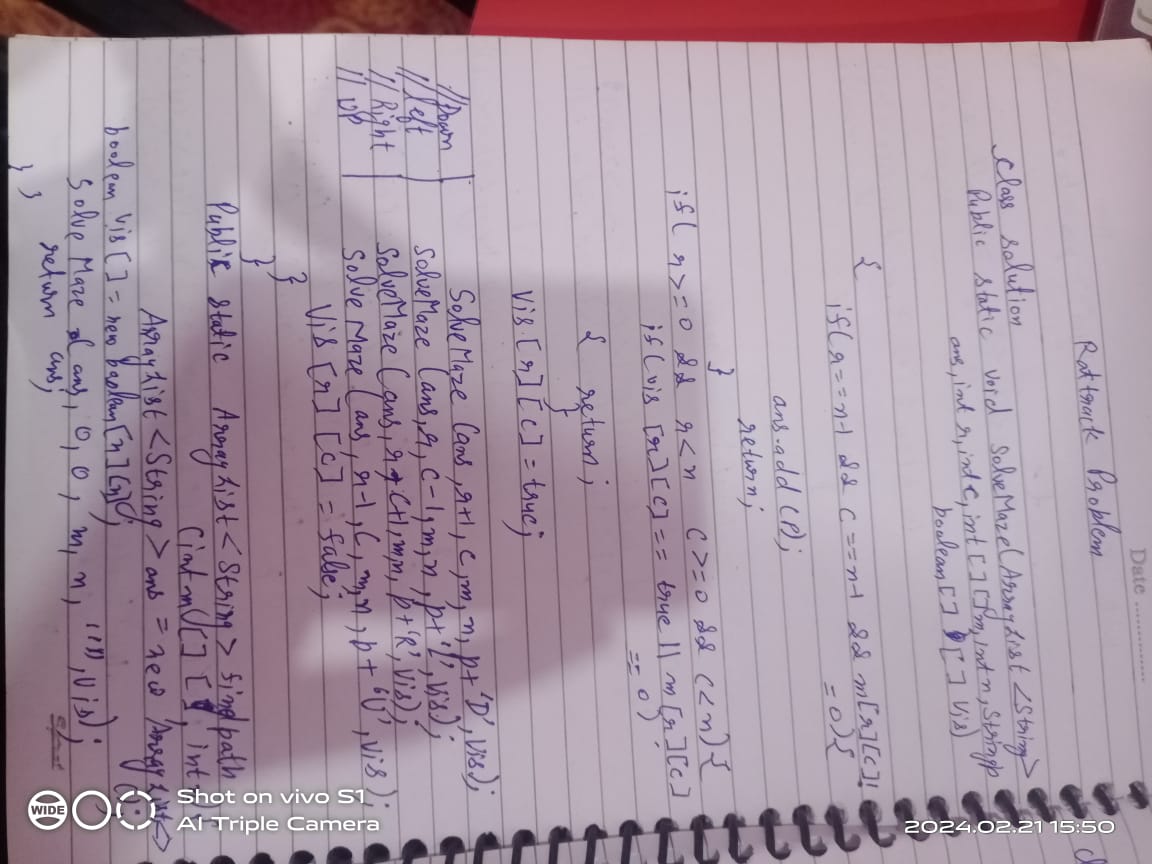 Date ............
Rattrack Problem
Class Solution
Public static void SolveMaze(ArrayList<String>
ans, int r, int c, int[][]m, int n, String p
boolean[][] vis)
{
if(r==n-1 && c==n-1 && m[r][c]!
=0){
ans.add(p);
return;
}
if( r>=0 && r<n c>=0 && c<n){
if(vis[r][c]== true || m[r][c]
== 0);
{ return;
}
vis.[r][c]=true;
//Down SolveMaze (ans,r+1, c,m,n,p+'D',vis);
//left SolveMaze (ans,r,c-1,m,n,p+'L',vis);
// Right SolveMaze (ans,r,c+1,m,n,p+'R',vis);
// UP Solve Maze (ans, r-1, c, m,n, p+ 'U', vis);
Vis[r][c]=false;
}
}
Public static ArrayList<String> findpath
(int m[][], int
ArrayList <String> ans = new ArrayList<>
();
boolean vis[]=new boolean[n][n];
Solve Maze (ans, 0, 0, m, n, "", vis);
return ans;
} }
WIDE
Shot on vivo S1
AI Triple Camera
2024.02.21 15:50